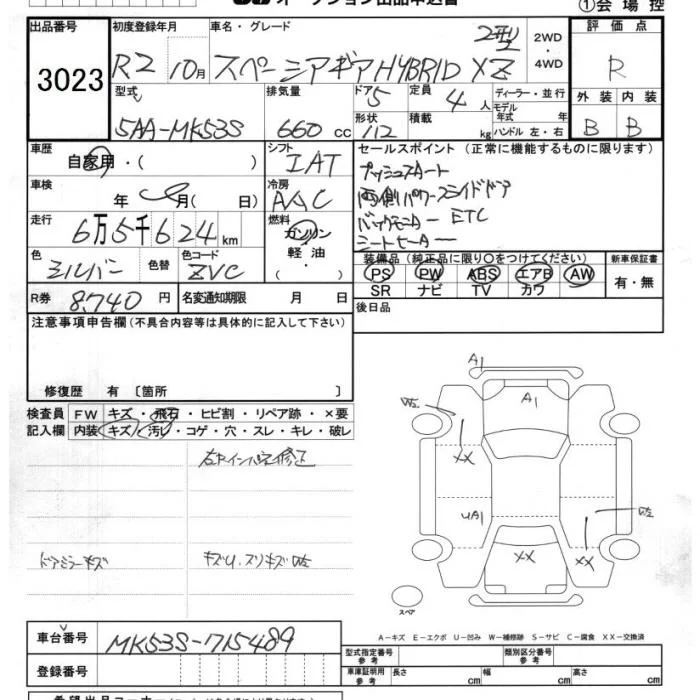 オークション出品申込書
①会場控
出品番号 初度登録年月 車名・グレード 評価点
3023 R2 10月 スペーシアギアHYBRID XZ 2型 2WD・4WD R
型式 排気量 ドア 定員 ディーラー・並行 外装 内装
5AA-MK53S 660 cc 5 4人 モデル年式 年 B B
形状 積載 kg ハンドル 左・右
112
車歴 自家用・( ) シフト IAT セールスポイント (正常に機能するものに限ります)
車検 年 月( 日) 冷房 AAC プッシュスタート
両側パワースライドドア
走行 6万5千624km 燃料 ガソリン・軽油・( ) バックモニター ETC
シートヒーター
色 シルバー 色替 色コード ZVC 装備品(純正品に限り○をつけてください) 新車保証書
PS PW ABS エアB AW 有・無
SR ナビ TV カワ
R券 8,740円 名変通知期限 月 日 後日品
注意事項申告欄(不具合内容等は具体的に記入して下さい)
修復歴 有 〔箇所 〕
検査員 FW キズ・飛石・ヒビ割・リペア跡・×要
記入欄 内装 キズ・汚レ・コゲ・穴・スレ・キレ・破レ
A1
A1
XX
UA1
XX
XX
ドアミラーキズ キズU、スリキズ
スペア
A-キズ E-エクボ U-凹み W-補修跡 S-サビ C-腐食 XX-交換済
車台番号 MK53S-715489
登録番号
型式指定番号 参考 類別区分番号 参考
車庫証明用 参考 長さ cm 幅 cm 高さ cm